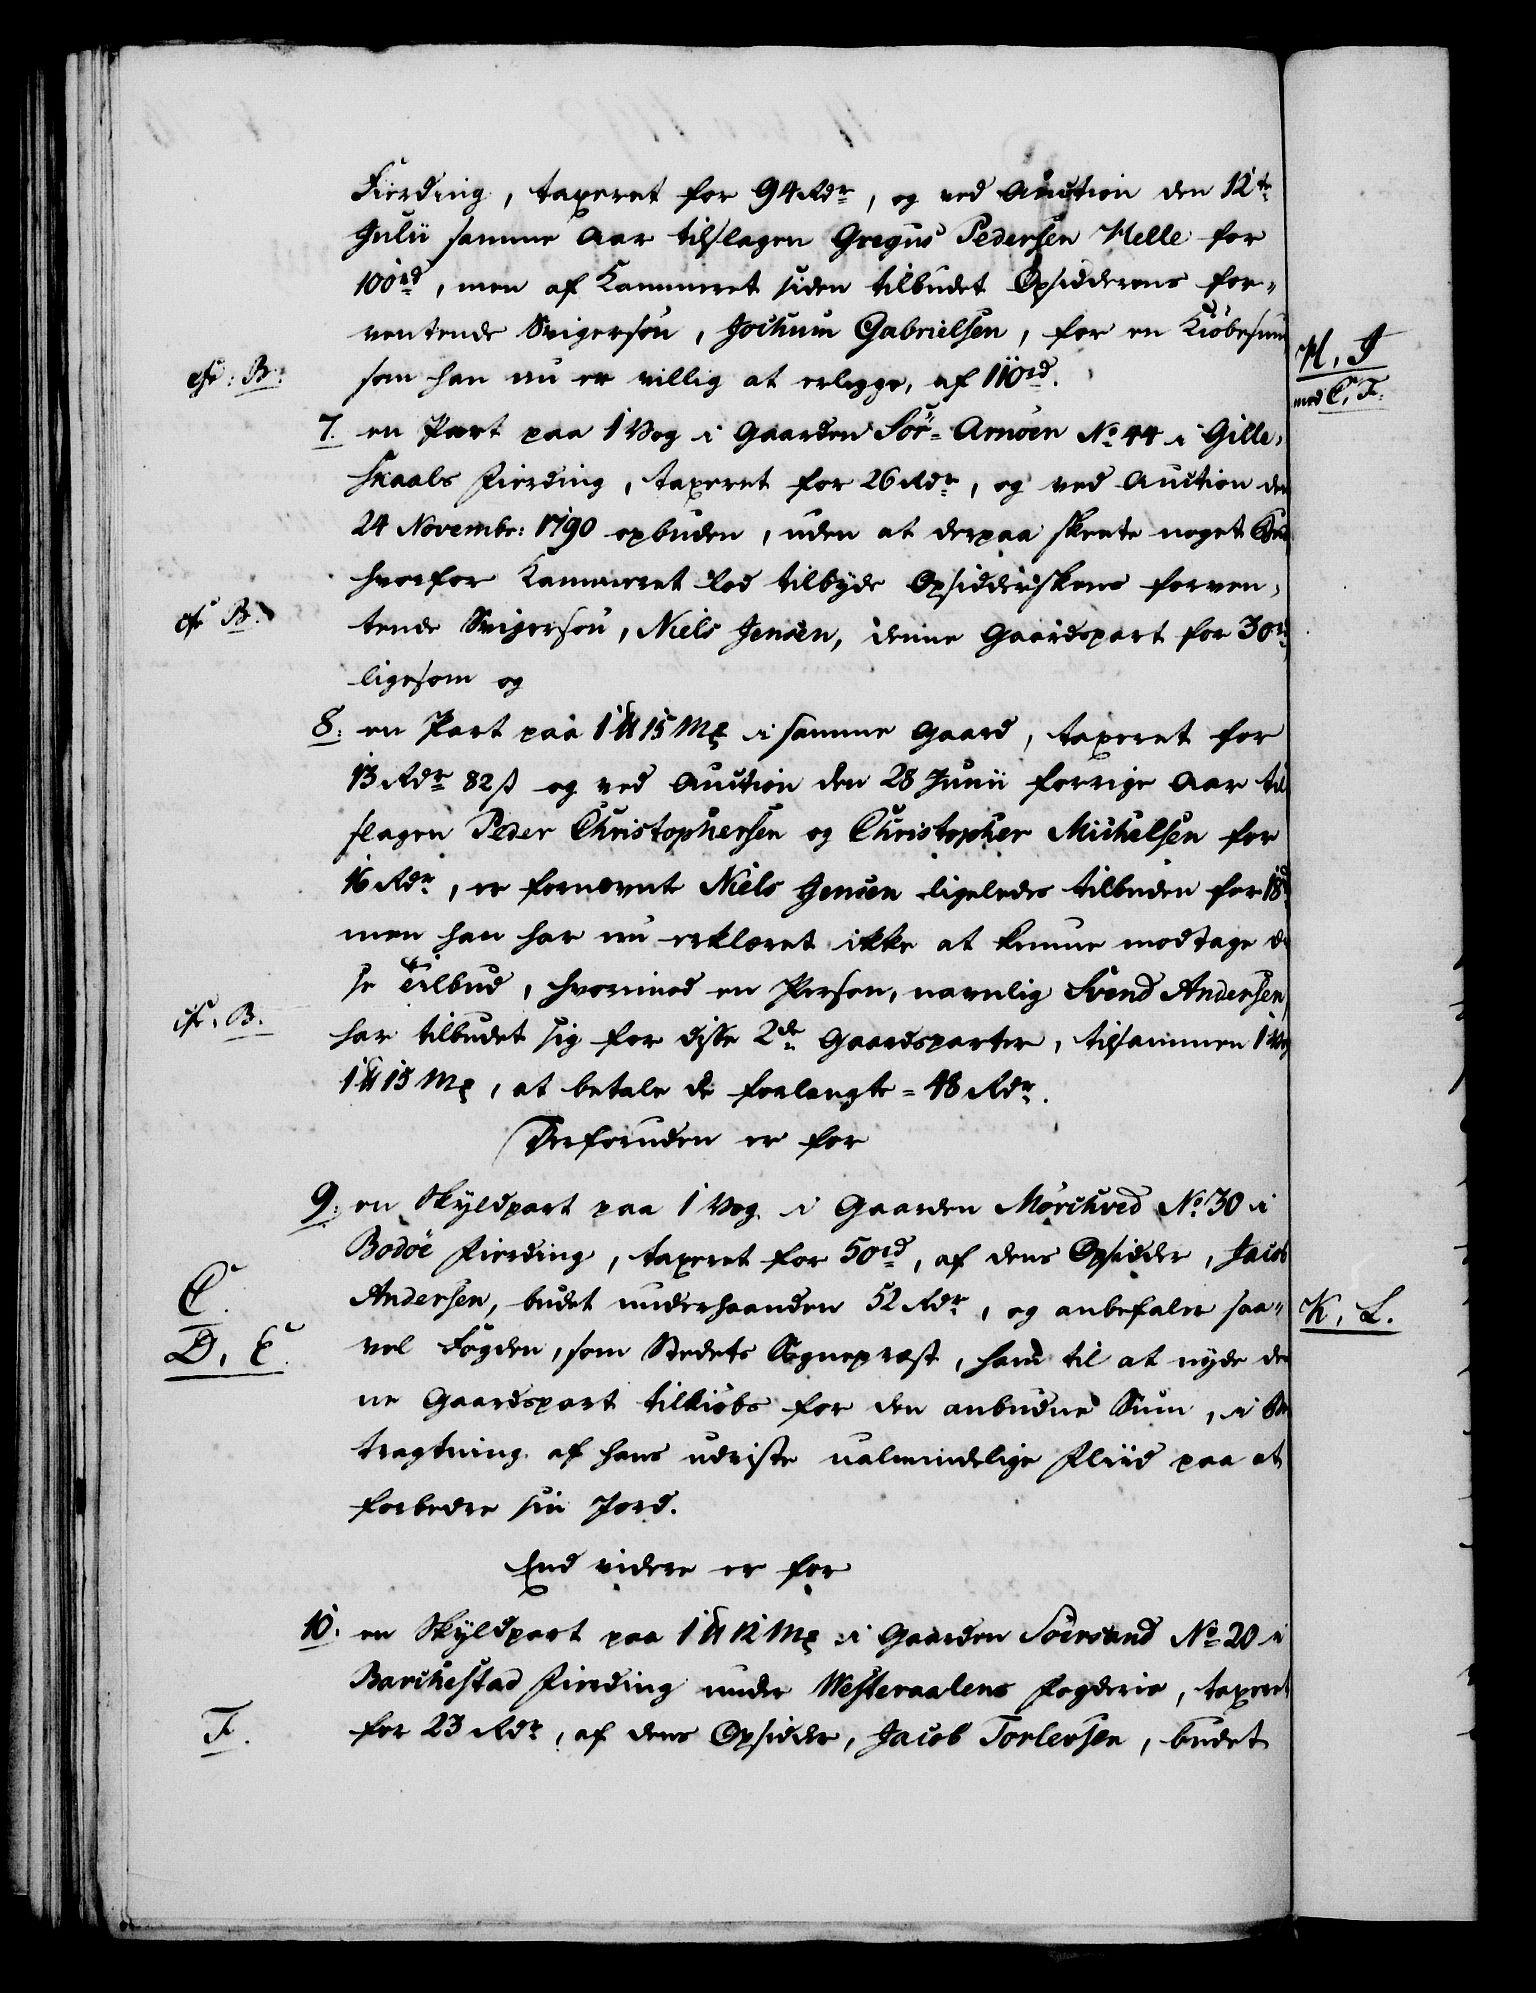 Fierding, taxeret for 94 Rdr, og ved Auction den 12te
Julii samme Aar tilslagen Gregus Pedersen Melle for
100rd, men af Kammeret siden tilbudet Opsidderens for-
ventende Svigersøn, Jochum Gabrielsen, for en Kiöbesum
cfr: B: som han nu er villig at erlegge, af 110rd.
7. en Part paa 1 Vog i Gaarden Sör-Arnöen No 44 i Gille-
skaals Fierding, taxeret for 26 Rdr, og ved Auction den
24 Novembr: 1790 opbuden, uden at derpaa skeete noget Bud
hvorfor Kammeret lod tilbyde Opsidderskens forven-
cfr B. tende Svigersøn, Niels Jensen, denne Gaardspart for 30rd
ligesom og
8. en Part paa 1 ℔ 15 Mk i samme Gaard, taxeret for
13 Rdr 82 ß og ved Auction den 28 Junii forrige Aar til
slagen Peder Christophersen og Christopher Michelsen for
16 Rdr, er fornevnte Niels Jensen ligeledes tilbuden for 18rd
men han har nu erklæret ikke at kunne modtage di
se Tilbud, hvorimod en Person, navnlig Svend Andersen,
cfr. B. har tilbudet sig for disse 2de Gaardsparter, tilsammen 1 Vog
1 ℔ 15 Mk, at betale de forlangte = 48 Rdr.
Derforuden er for
9. en Skyldpart paa 1 Vog i Gaarden Mörchved No 30 i
Bodöe Fierding, taxeret for 50rd, af dens Opsidder, Jacob
C. Andersen, budet underhaanden 52 Rdr, og anbefaler saa-
D, E. vel Fogden, som Stedets Sognepræst, ham til at nyde den
ne Gaardspart tilkiöbs for den anbudne Sum, i Be
tragtning af hans udviste ualmindelige Fliid paa at
forbedre sin Jord.
End videre er for
10. en Skyldpart paa 1 ℔ 12 Mk i Gaarden Söersand No 20 i
Barchestad Fierding under Westeraalens Fogderie, taxeret
F. for 23 Rdr, af dens Opsidder, Jacob Torlevsen, budet
H, J
med C, F.
K, L.